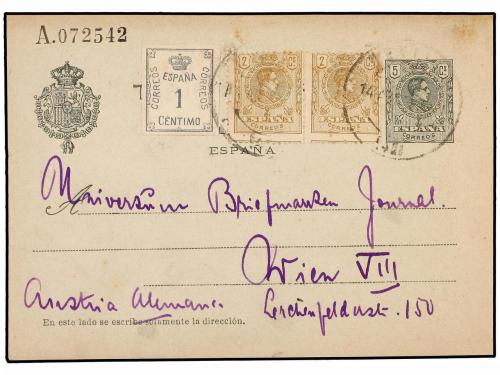 A.072542
CORREOS ESPAÑA CORREOS
1
CÉNTIMO
2 Cs
ESPAÑA
CORREOS
2 Cs
ESPAÑA
CORREOS
5 Cs
ESPAÑA
CORREOS
ESPAÑA
Universum Briefmarken Journal.
Wien VIII
Austria Alemana.
Lerchenfelderstr. 150
En este lado se escribe solamente la dirección.